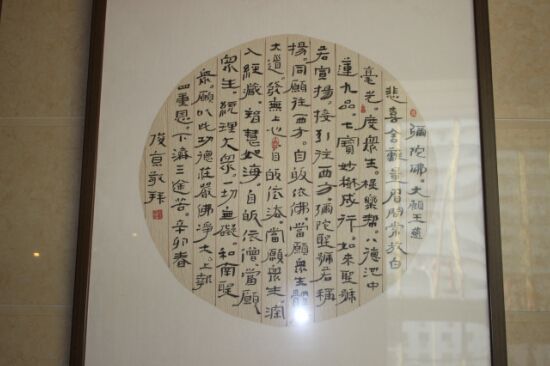 彌陀佛。大願王。慈
悲喜舍難量。眉間常放白
毫光。度眾生。極樂幫。八德池中
蓮九品。七寶妙樹成行。如來聖號
若宣揚。接引往西方。彌陀聖號若稱
揚。同願往西方。自皈依佛當願眾生體
大道。發無上心。自皈依法。當願眾生深
入經藏。智慧如海。自皈依僧當願
眾生。統理大眾。一切無礙。和南聖
眾。願以此功德莊嚴佛淨土。上報
四重恩。下濟三途苦。辛卯春
敬拜